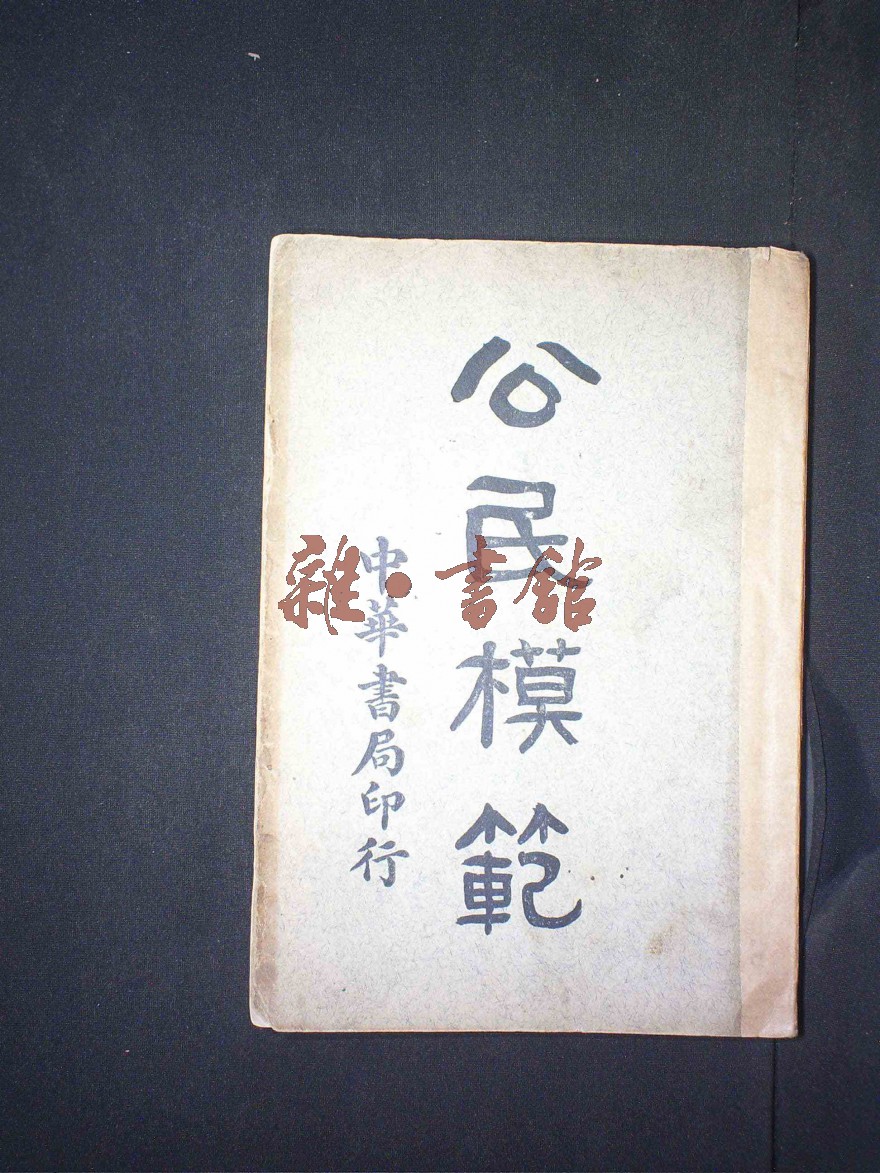 公民模範
中華書局印行
雜·書館